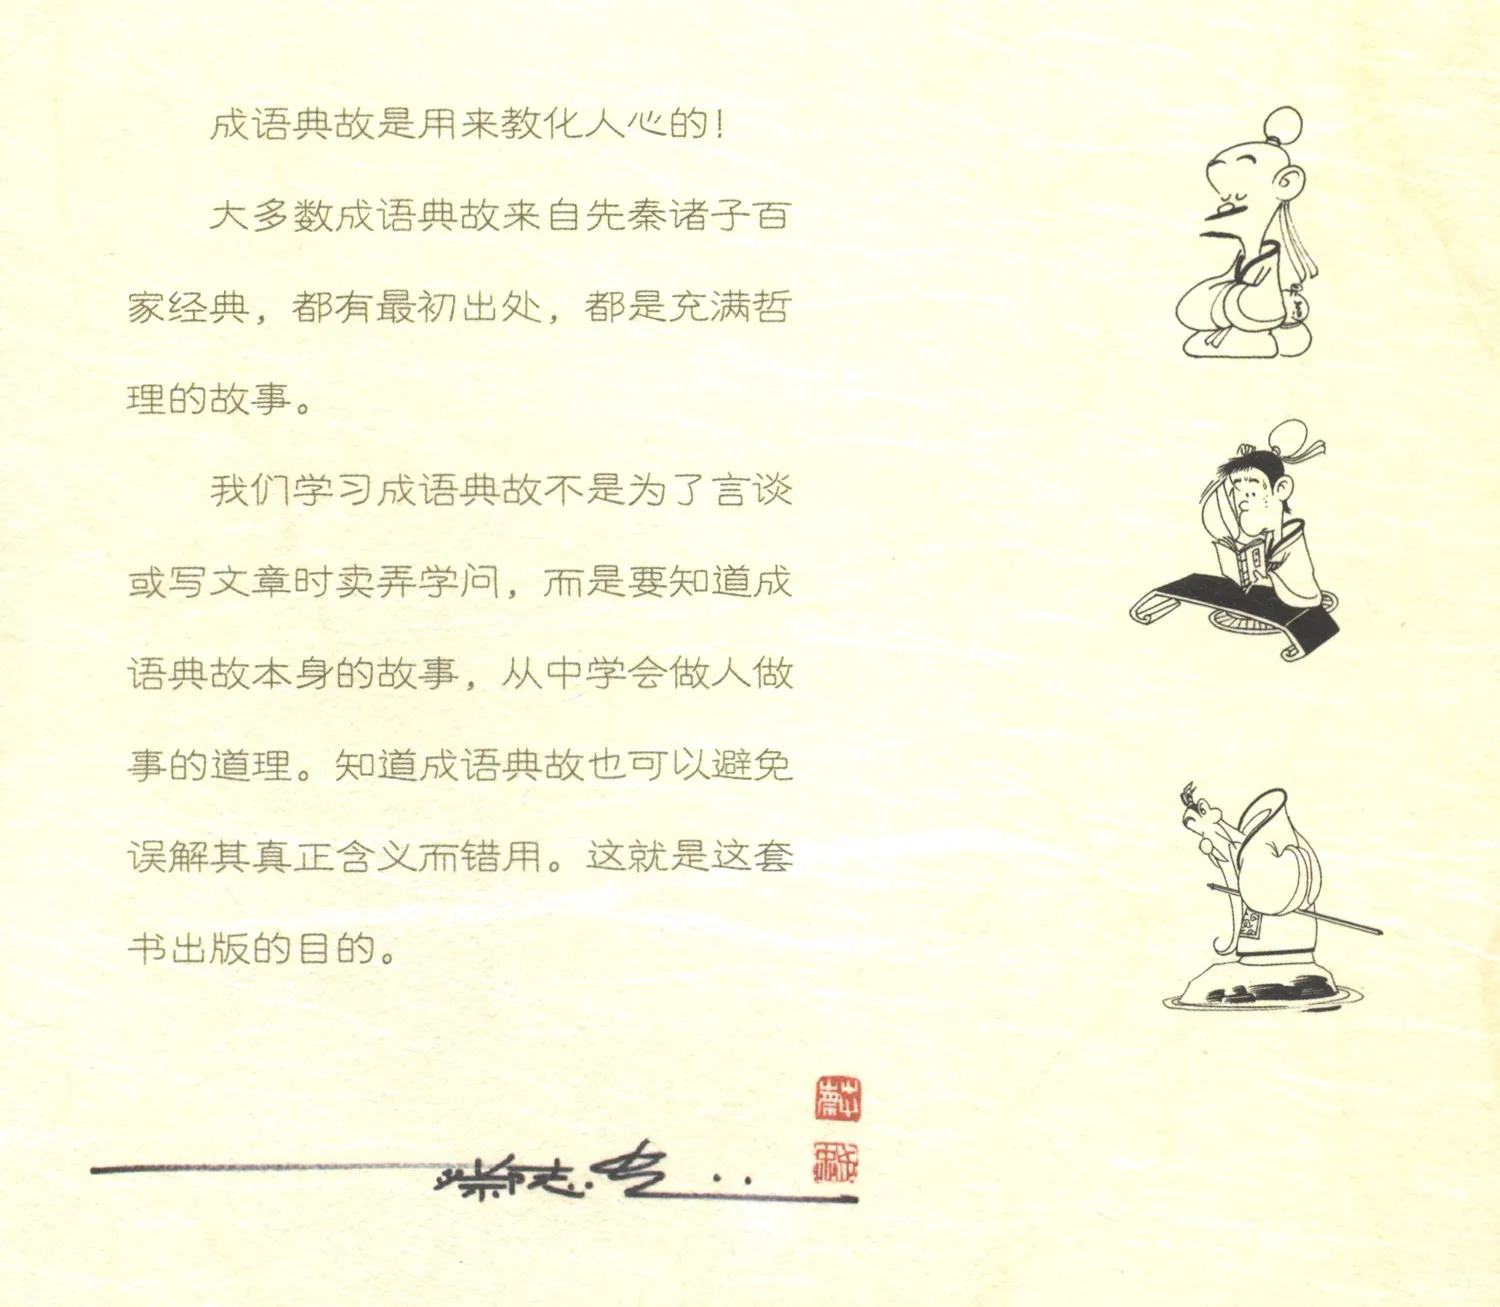 成语典故是用来教化人心的！
大多数成语典故来自先秦诸子百
家经典，都有最初出处，都是充满哲
理的故事。
我们学习成语典故不是为了言谈
或写文章时卖弄学问，而是要知道成
语典故本身的故事，从中学会做人做
事的道理。知道成语典故也可以避免
误解其真正含义而错用。这就是这套
书出版的目的。
蔡志忠